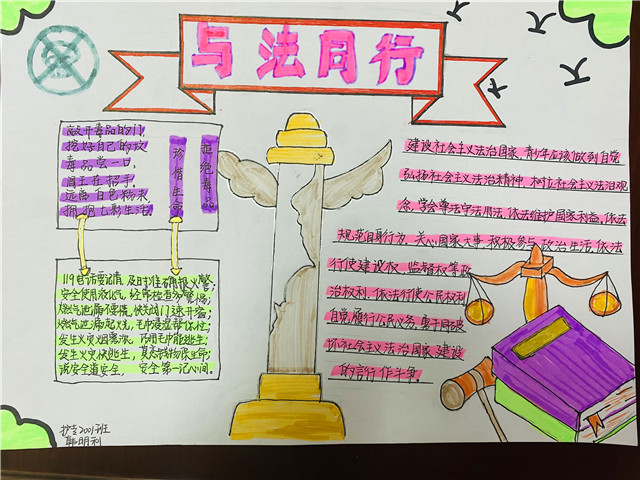 与法同行
敲开毒品的门
挖好自己的坟
毒品尝一口
酋王在招手
远离白色粉末
拥抱七彩生活
珍惜生命
拒绝毒品
119电话要记清,及时准确报火警;
安全使用液化气,经常检查多警惕;
燃气泄漏不要慌,快关阀门速开窗;
燃气泄漏起火,毛巾浸湿帮你忙;
发生火灾烟雾浓,巧用毛巾能逃生;
发生火灾快逃生,莫恋钱物保生命;
消安全道安全,安全第一记心间。
建设社会主义法治国家,青少年应该做到自觉
弘扬社会主义法治精神,树立社会主义法治观
念,学会尊法守法用法,依法维护国家利益,依法
规范自身行为,关心国家大事,积极参与政治生活,依法
行使建议权、监督权等政
治权利,依法行使公民权利
自觉履行公民义务,勇于同破
坏社会主义法治国家建设
的言行作斗争。
护士2001班
郭明利